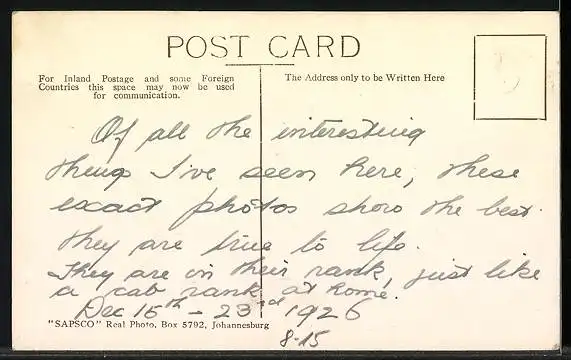 POST CARD
For Inland Postage and some Foreign
Countries this space may now be used
for communication.
The Address only to be Written Here
Of all the interesting
things I've seen here, these
exact photos show the best.
they are true to life.
They are in their rank, just like
a cab rank at Rome.
Dec 15th - 23rd 1926
"SAPSCO" Real Photo, Box 5792, Johannesburg
8-15